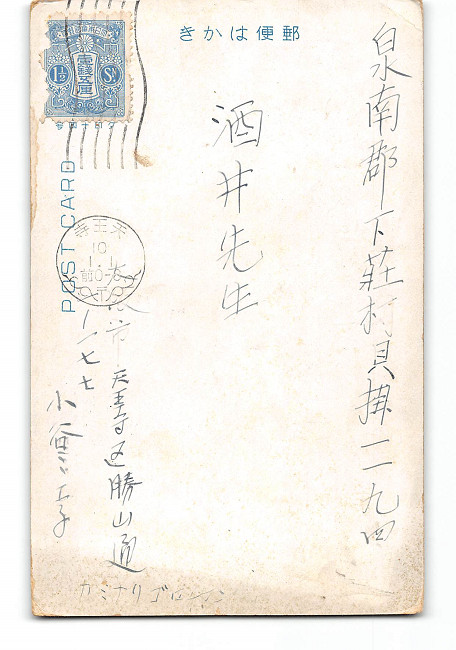 郵便はかき
泉南郡下莊村貝掛一一九四
酒井先生
1½ Sn
壹錢五厘
POST CARD
天王寺
10
1.1
前0-
市天王寺区勝山通
一七七
小
カミナリゴ